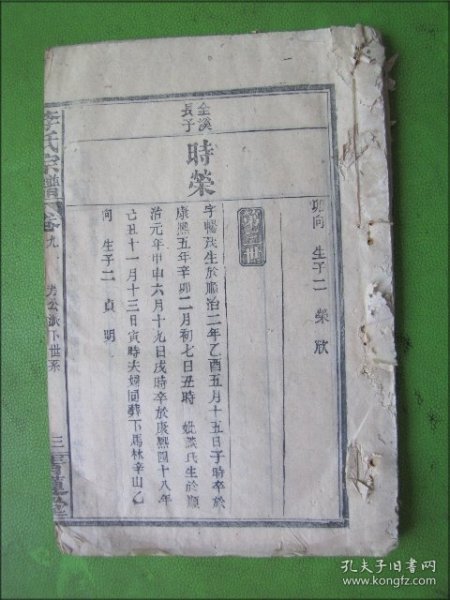 坤向 生子二 榮欣
全溪
長子
時榮
字暢茂生於順治二年乙酉五月十五日子時卒於
康熙五年辛卯二月初七日丑時 妣談氏生於順
治元年甲申六月十九日戌時卒於康熙四十八年
己丑十一月十三日寅時夫婦同葬下馬林辛山乙
向 生子二 貞明
李氏宗譜
卷九
公派下世系
三
孔夫子旧书网
www.kongfz.com